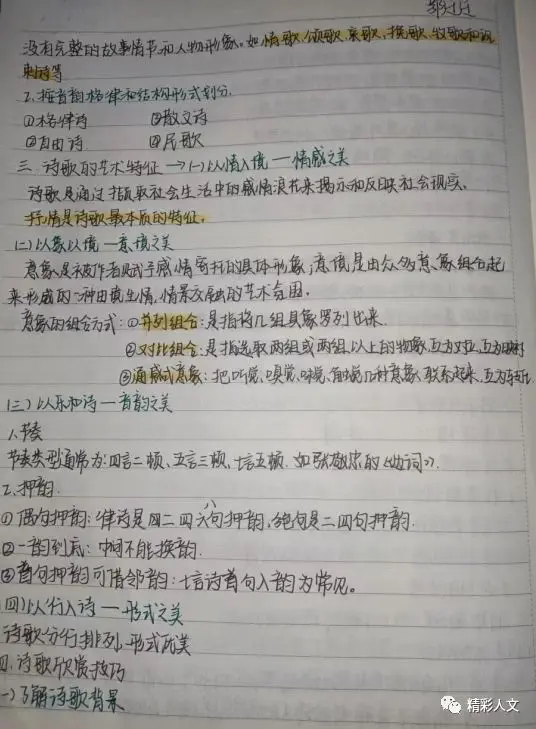 没有完整的故事情节和人物形象。如情歌、颂歌、哀歌、挽歌、牧歌和讽
刺诗等
2.按音韵格律和结构形式划分.
①格律诗 ③散文诗
②自由诗 ④民歌
三.诗歌的艺术特征→(一)以情入境—情感之美
诗歌是通过撷取社会生活中的感情浪花来揭示和反映社会现实.
抒情是诗歌最本质的特征。
(二)以象以境—意境之美
意象是被作者赋予感情寄托的具体形象;意境是由众多意象组合起
来形成的一种由境生情,情景交融的艺术氛围.
意象的组合方式:①并列组合:是指将几组具象罗列出来.
②对比组合:是指选取两组或两组以上的物象,互为对应,互为映衬
③通感式意象:把听觉、嗅觉、味觉、触觉几种意象联系起来,互为
(三)以乐和诗—音韵之美
1.节奏
节奏类型通常为:四言二顿、五言三顿、七言五顿.如张敬忠的《边词》.
2.押韵.
①偶句押韵:律诗是四二四六八句押韵,绝句是二四句押韵.
②一韵到底:中间不能换韵.
③首句押韵可借邻韵:七言诗首句入韵为常见。
(四)以行入诗—形式之美
诗歌分行排列,形式优美
四.诗歌欣赏技巧
(一)了解诗歌背景
精彩人文